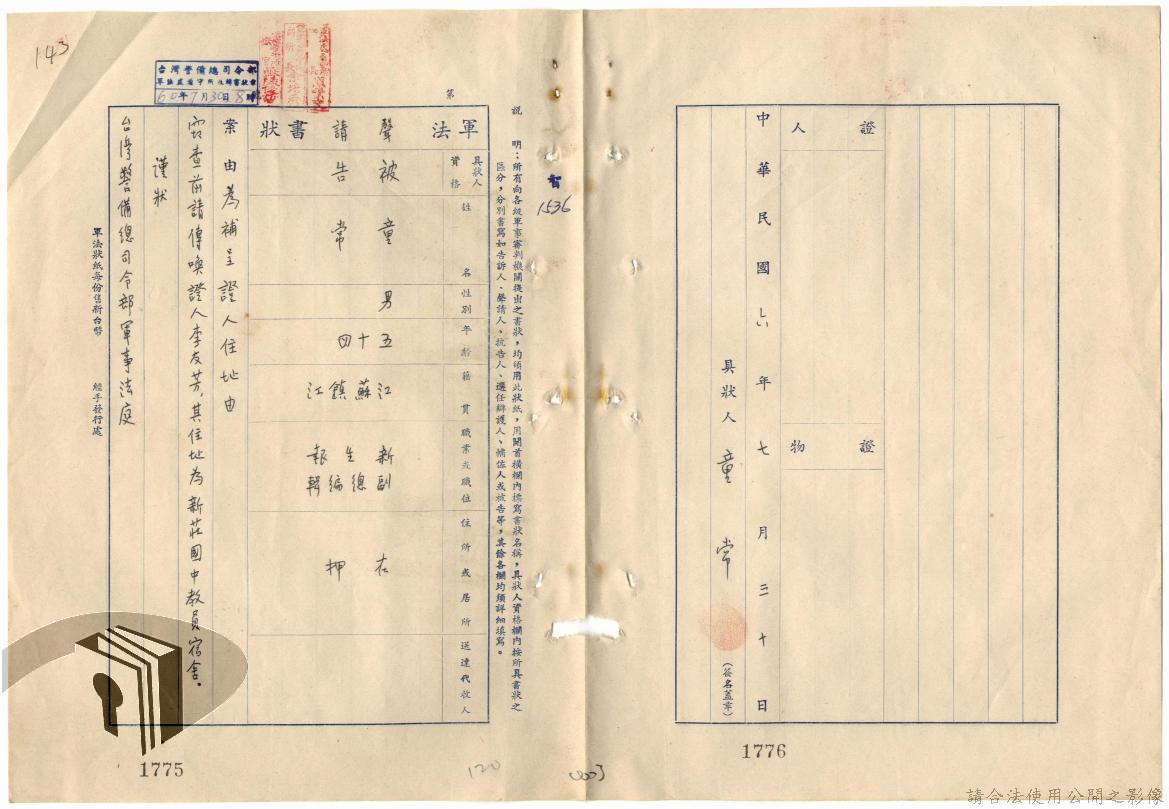 143
台灣警備總司令部
60年7月30日8時
第
說明：所有向各級軍事審判機關提出之書狀，均須用此狀紙，用開首橫欄內標寫書狀名稱，具狀人資格欄內按所具書狀之
區分，分別書寫如告訴人、聲請人、抗告人、選任辯護人、輔佐人或被告等，其餘各欄均須詳細填寫。
軍法聲請書狀
具狀人資格
被告
姓名
童常
性別
男
年齡
五十四
籍貫
江蘇鎮江
職業或職位
新生報
副總編輯
住所或居所
在押
送達代收人
案由為補呈證人住址由
查前請傳喚證人李友芳，其住址為新莊國中教員宿舍。
謹狀
台灣警備總司令部軍事法庭
軍法狀紙每份售新台幣
經手發行處
1775
120
1536
證人
證物
中華民國六十年七月三十日
具狀人童常
(簽名蓋章)
1776
請合法使用公開之影像